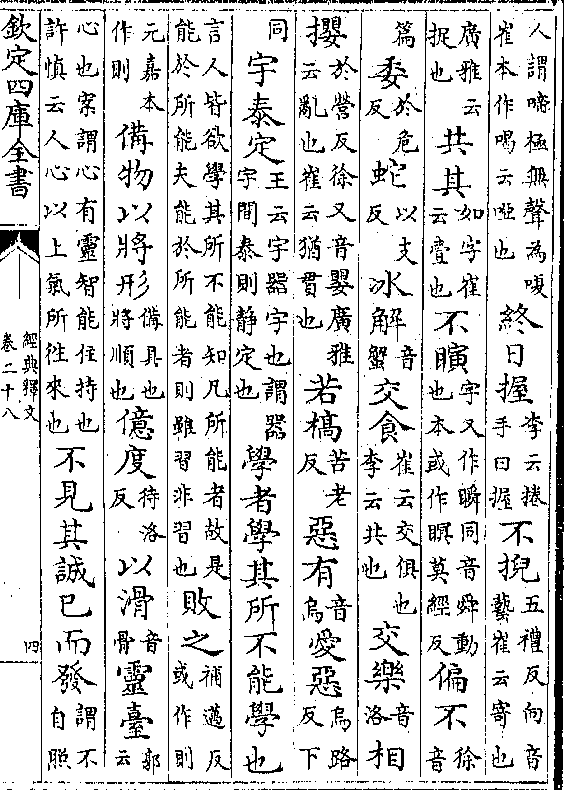 人謂啼極無聲為嗄崔本作喝云啞也終日握李云捲手曰握不掜五禮反向音藝崔云寄也
廣雅云捉也共其如字崔云壹也不瞚字又作瞬同音舜動也本或作瞑莫經反偏不徐音
篇委於危反蛇以支反冰解音蟹交食崔云交俱也李云共也交樂音洛相
攖於營反徐又音嬰廣雅云亂也崔云猶貫也若槁苦老反惡有音烏愛惡烏路反下
同宇泰定王云宇器宇也謂器宇間泰則静定也學者學其所不能學也
言人皆欲學其所不能知凡所能者故是能於所能夫能於所能者則雖習非習也敗之補邁反或作則
元嘉本作則備物以將形備具也將順也億度待洛反以滑音骨靈臺郭云
心也案謂心有靈智能住持也許慎云人心以上氣所往來也不見其誠已而發謂不自照
欽定四庫全書
經典釋文
卷二十八
四